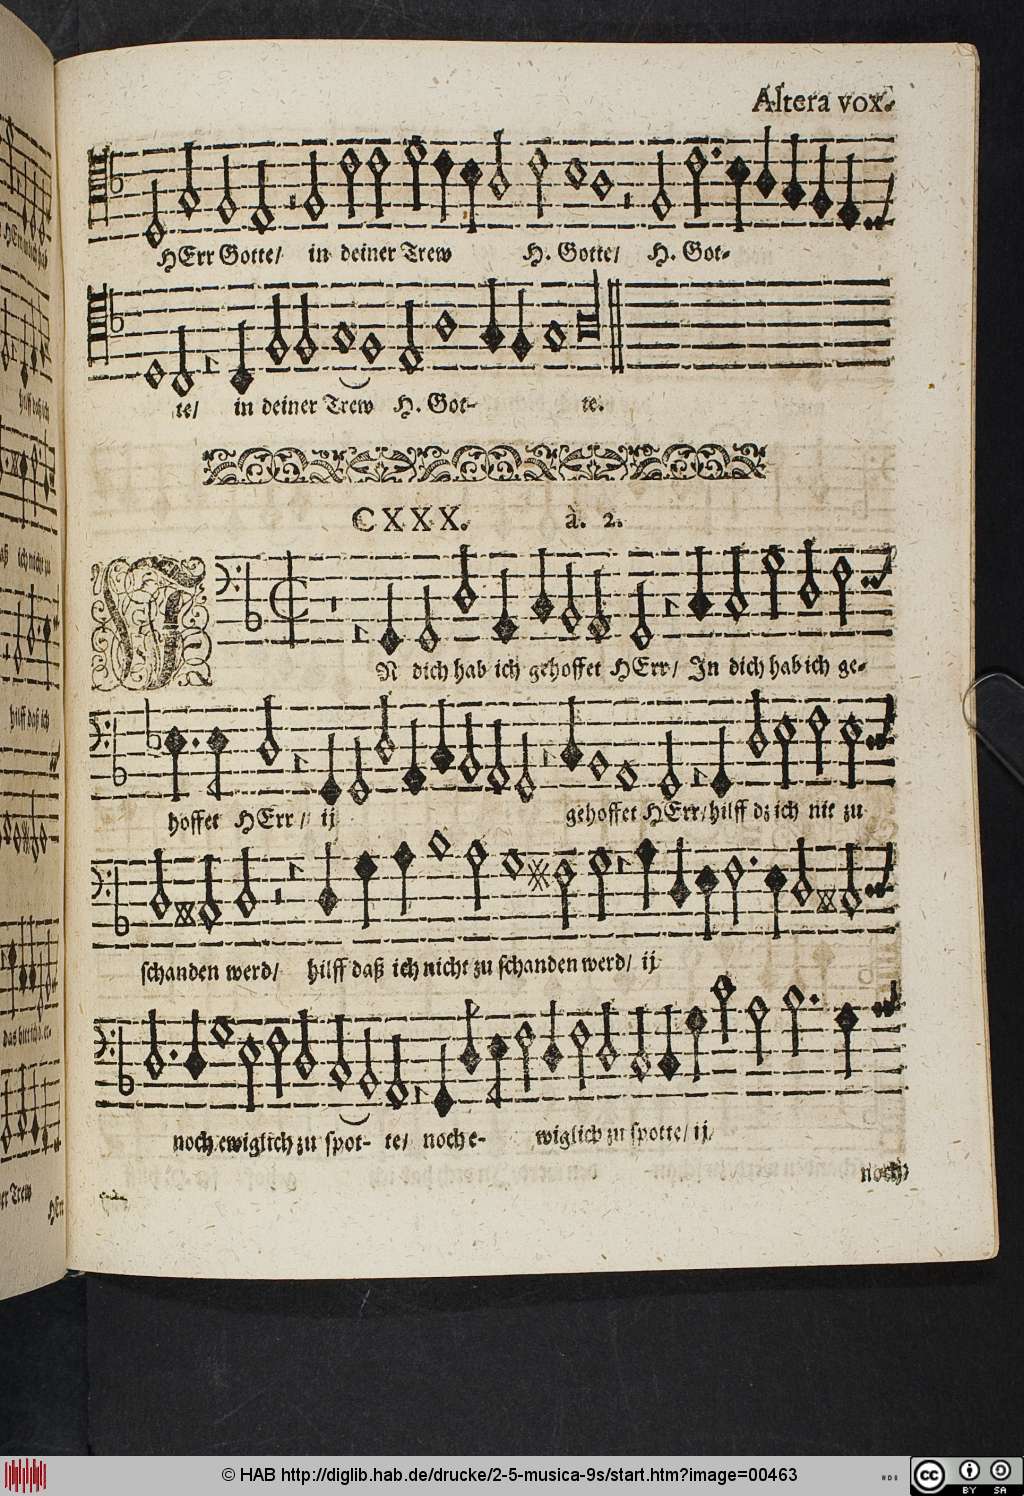 Altera vox.
HErr Gotte/ in deiner Trew H. Gotte/ H. Got-
te/ in deiner Trew H. Got- te.
CXXX. à. 2.
IN dich hab ich gehoffet HErr/ In dich hab ich ge-
hoffet HErr/ ij gehoffet HErr/ hilff dz ich nit zu
schanden werd/ hilff daß ich nicht zu schanden werd/ ij
noch ewiglich zu spot- te/ noch e- wiglich zu spotte/ ij/
noch
© HAB http://diglib.hab.de/drucke/2-5-musica-9s/start.htm?image=00463
cc BY SA